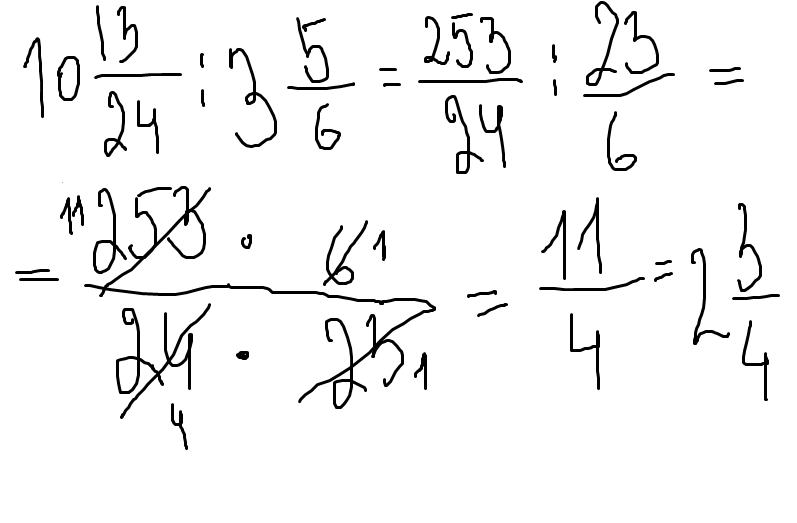 10 13/24 : 3 5/6 = 253/24 : 23/6 =
= 11 253 · 6 1 / 24 4 · 23 1 = 11/4 = 2 3/4